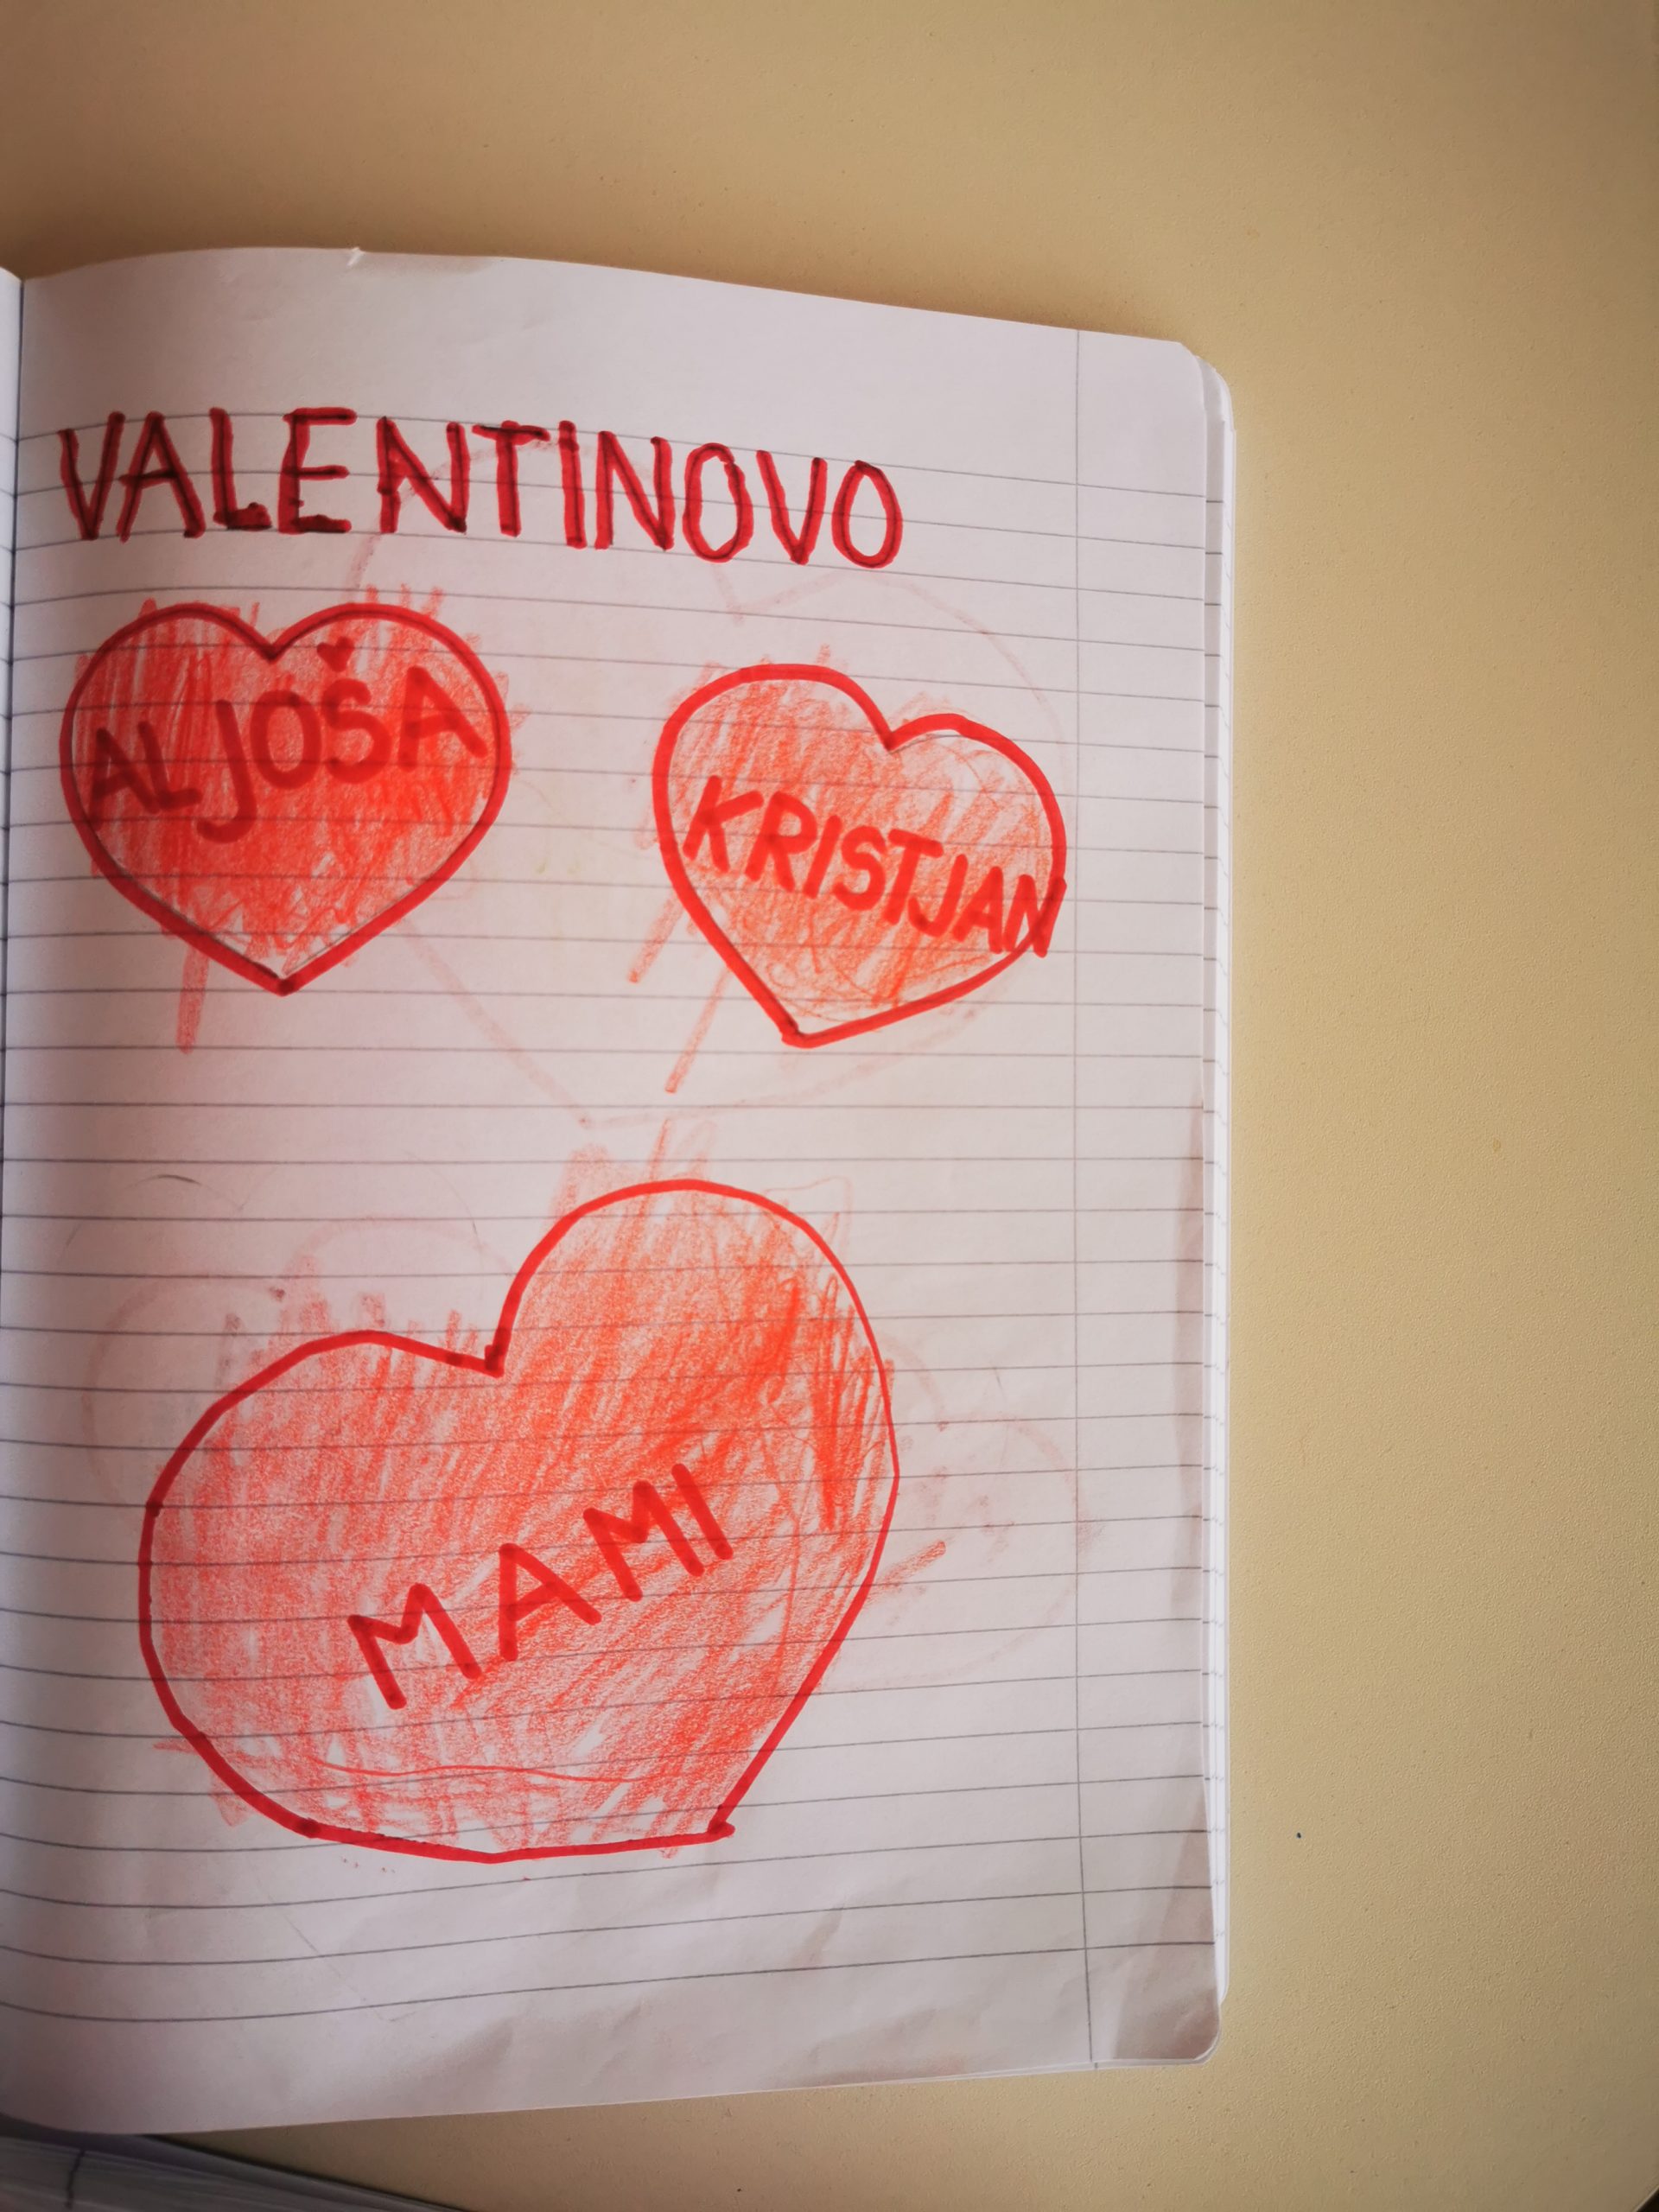 VALENTINOVO
ALJOŠA
KRISTJAN
MAMI